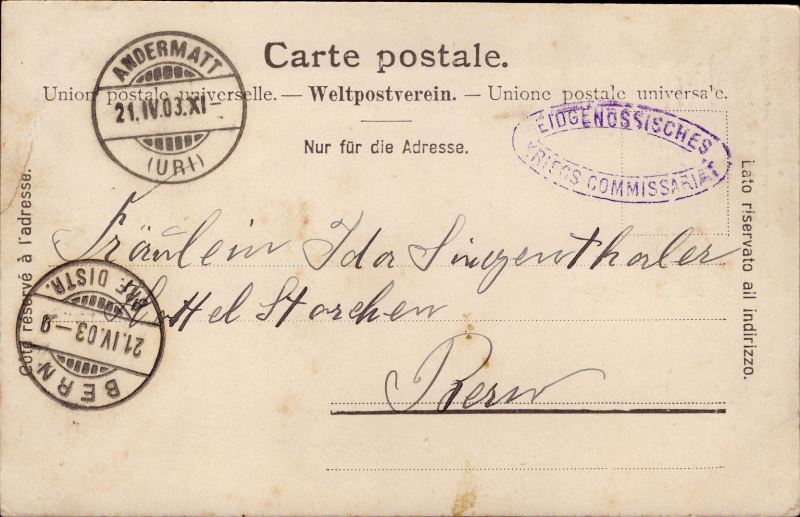 Carte postale.
Union postale universelle. — Weltpostverein. — Unione postale universale.
Nur für die Adresse.
ANDERMATT
21.IV.03.XI-
(URI)
EIDGENÖSSISCHES
KRIEGS COMMISSARIAT
Côté réservé à l'adresse.
Lato riservato all indirizzo.
Fräulein Ida Singenthaler
Hottel Storchen
Bern
BERN
21.IV.03-9
BRF. DISTR.